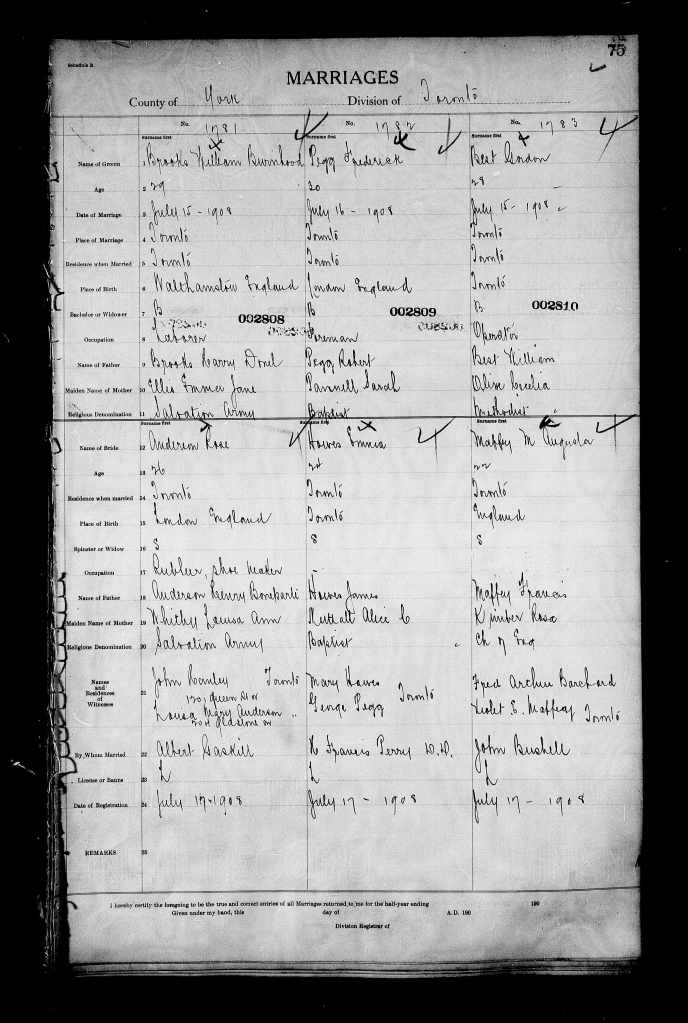 75
Schedule B
MARRIAGES
County of York Division of Toronto
No. 1781 No. 1782 No. 1783
Surname first Surname first Surname first
Name of Groom 1 Brooks William Burnhood Pegg Frederick Best Gordon
Age 2 29 20 28
Date of Marriage 3 July 15 - 1908 July 16 - 1908 July 15 - 1908
Place of Marriage 4 Toronto Toronto Toronto
Residence when Married 5 Toronto Toronto Toronto
Place of Birth 6 Walthamstow England London England Toronto
Bachelor or Widower 7 B B B
002808 002809 002810
Occupation 8 Laborer Foreman Operator
Name of Father 9 Brooks Harry Pegg Robert Best William
Maiden Name of Mother 10 Ellis Emma Jane Pannell Sarah Olive Cecelia
Religious Denomination 11 Salvation Army Baptist Methodist
Surname first Surname first Surname first
Name of Bride 12 Anderson Rose Howes Emma Maffey M Augusta
Age 13 26 24 22
Residence when married 14 Toronto Toronto Toronto
Place of Birth 15 London England Toronto England
Spinster or Widow 16 S S S
Occupation 17 shoe maker -
Name of Father 18 Anderson Henry Boneparti Howes James Maffey Francis
Maiden Name of Mother 19 Whitby Louisa Ann Nuttall Alice C Kimber Rosa
Religious Denomination 20 Salvation Army Baptist " Ch of Eng
Names and Residences of Witnesses 21 John Hanley Toronto Mary Howes Fred Archer Barchard
1301 Queen St W George Pegg Toronto
Louisa Mary Anderson " Violet E. Maffey Toronto
204 Gladstone av
By Whom Married 22 Albert Gaskill H Francis Perry D.D. John Bushell
License or Banns 23 L L L
Date of Registration 24 July 17 - 1908 July 17 - 1908 July 17 - 1908
REMARKS 25
I hereby certify the foregoing to be the true and correct entries of all Marriages returned to me for the half-year ending 190
Given under my hand, this day of A.D. 190
Division Registrar of